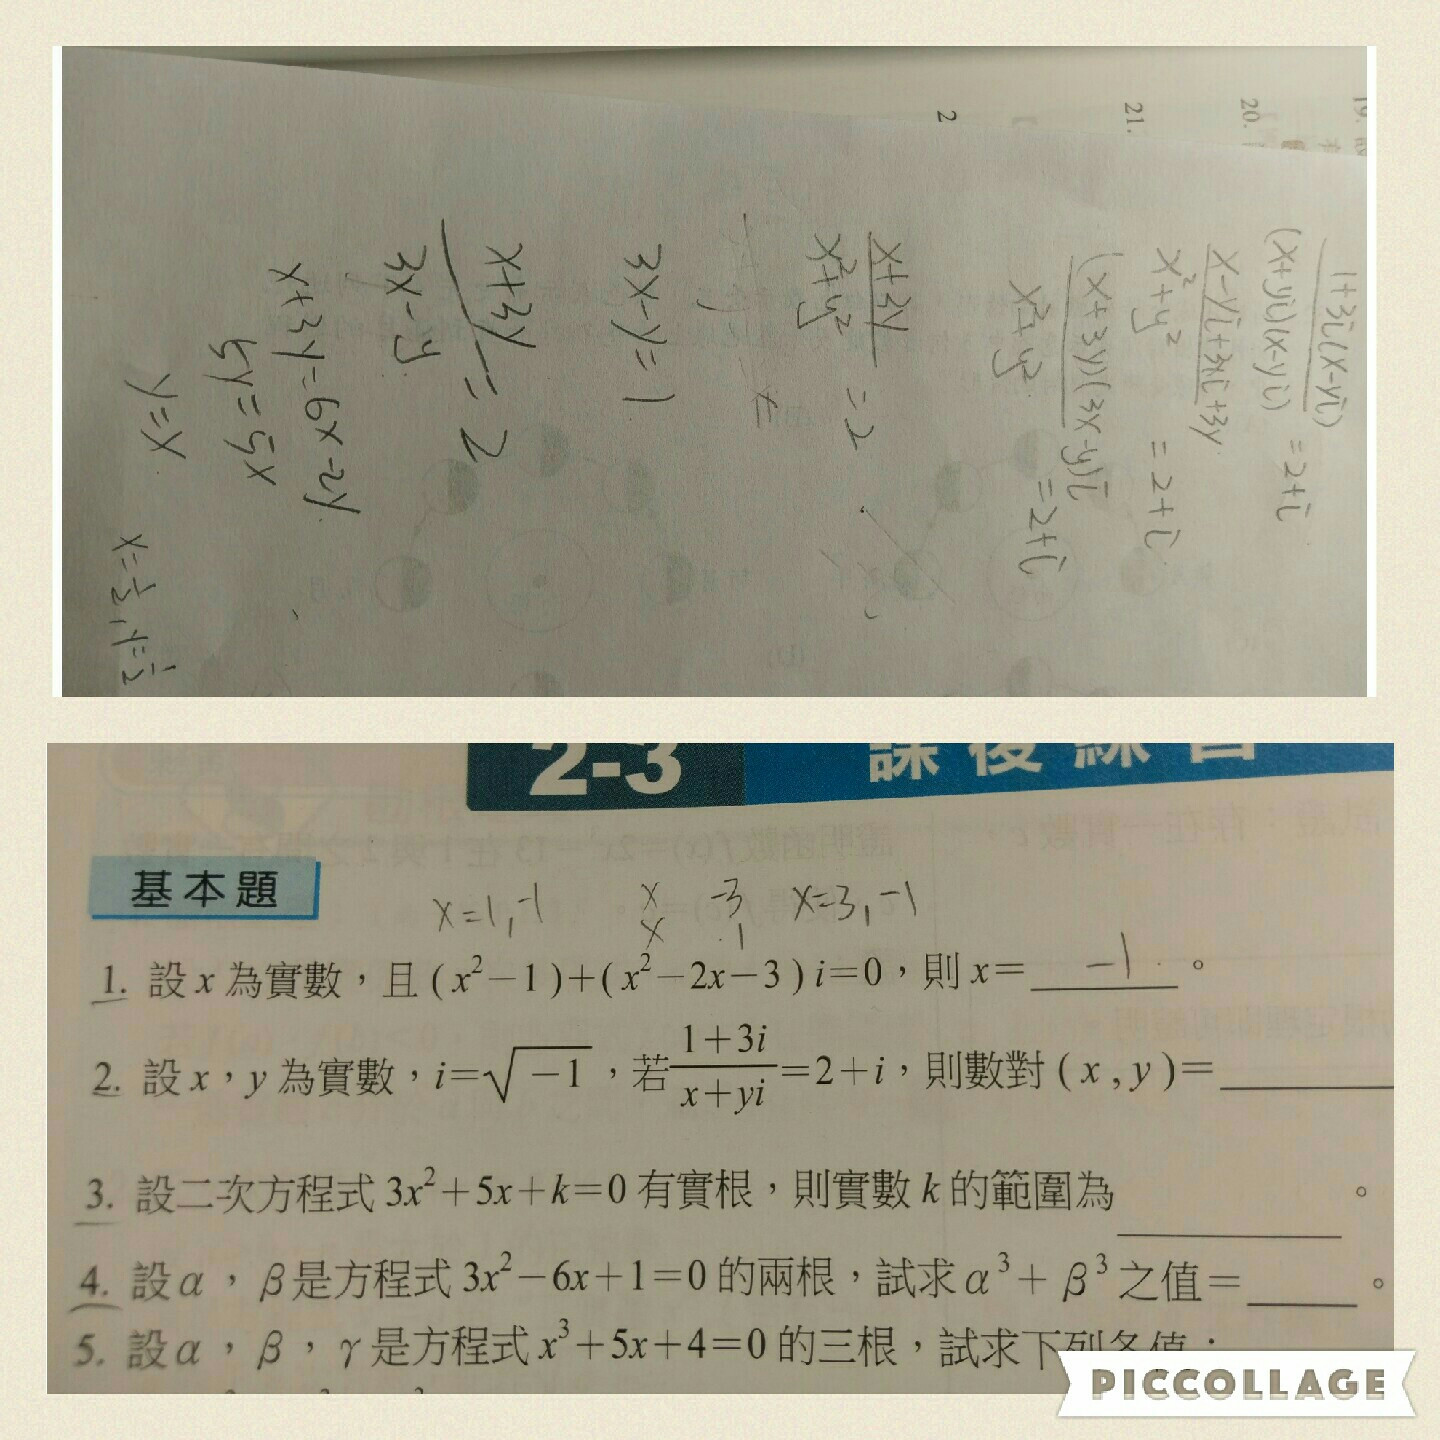 19.
20.
21.
2
1+3i(x-yi)
(x+yi)(x-yi) =2+i
x-yi+3xi+3y
x²+y² =2+i
(x+3y)(3x-y)i
x²+y² =2+i
x+3y
x²+y² =2
3x-y=1
x+3y
3x-y =2
x+3y=6x-2y
5y=5x
y=x
x=½, y=½
2-3 課後練習
基本題
x=1,-1 x -3 x=3,-1
x 1
1. 設 x 為實數，且 (x²-1)+(x²-2x-3)i=0，則 x= -1 。
2. 設 x，y 為實數，i=√-1，若 (1+3i)/(x+yi)=2+i，則數對 (x,y)=
3. 設二次方程式 3x²+5x+k=0 有實根，則實數 k 的範圍為 。
4. 設 α，β 是方程式 3x²-6x+1=0 的兩根，試求 α³+β³ 之值= 。
5. 設 α，β，γ 是方程式 x³+5x+4=0 的三根，試求下列各值：
PICCOLLAGE